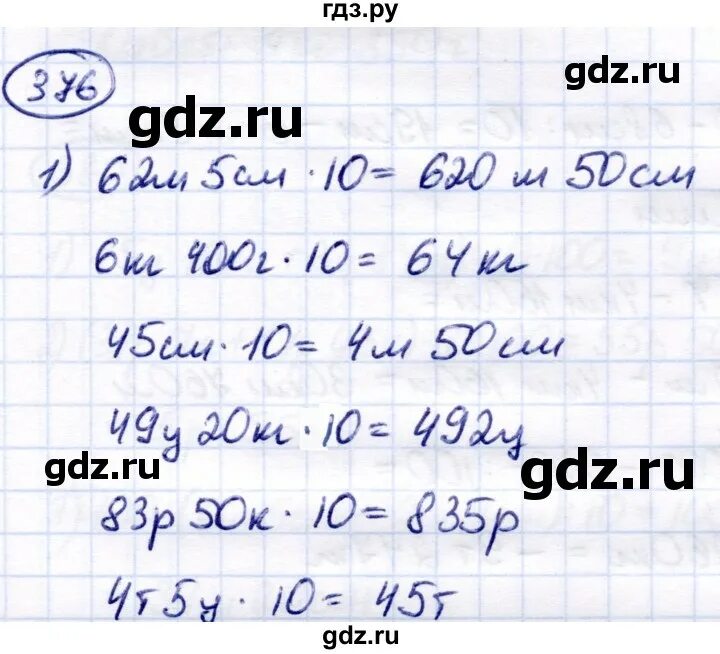 гдз.ру
376
gdz.ru
gdz.ru
1) 62м 5см · 10 = 620 м 50 см
6кг 400г · 10 = 64 кг
45см · 10 = 4м 50 см
49ц 20кг · 10 = 492ц
gdz.ru
gdz.ru
83р 50к · 10 = 835р
4т 5ц · 10 = 45т
gdz.ru